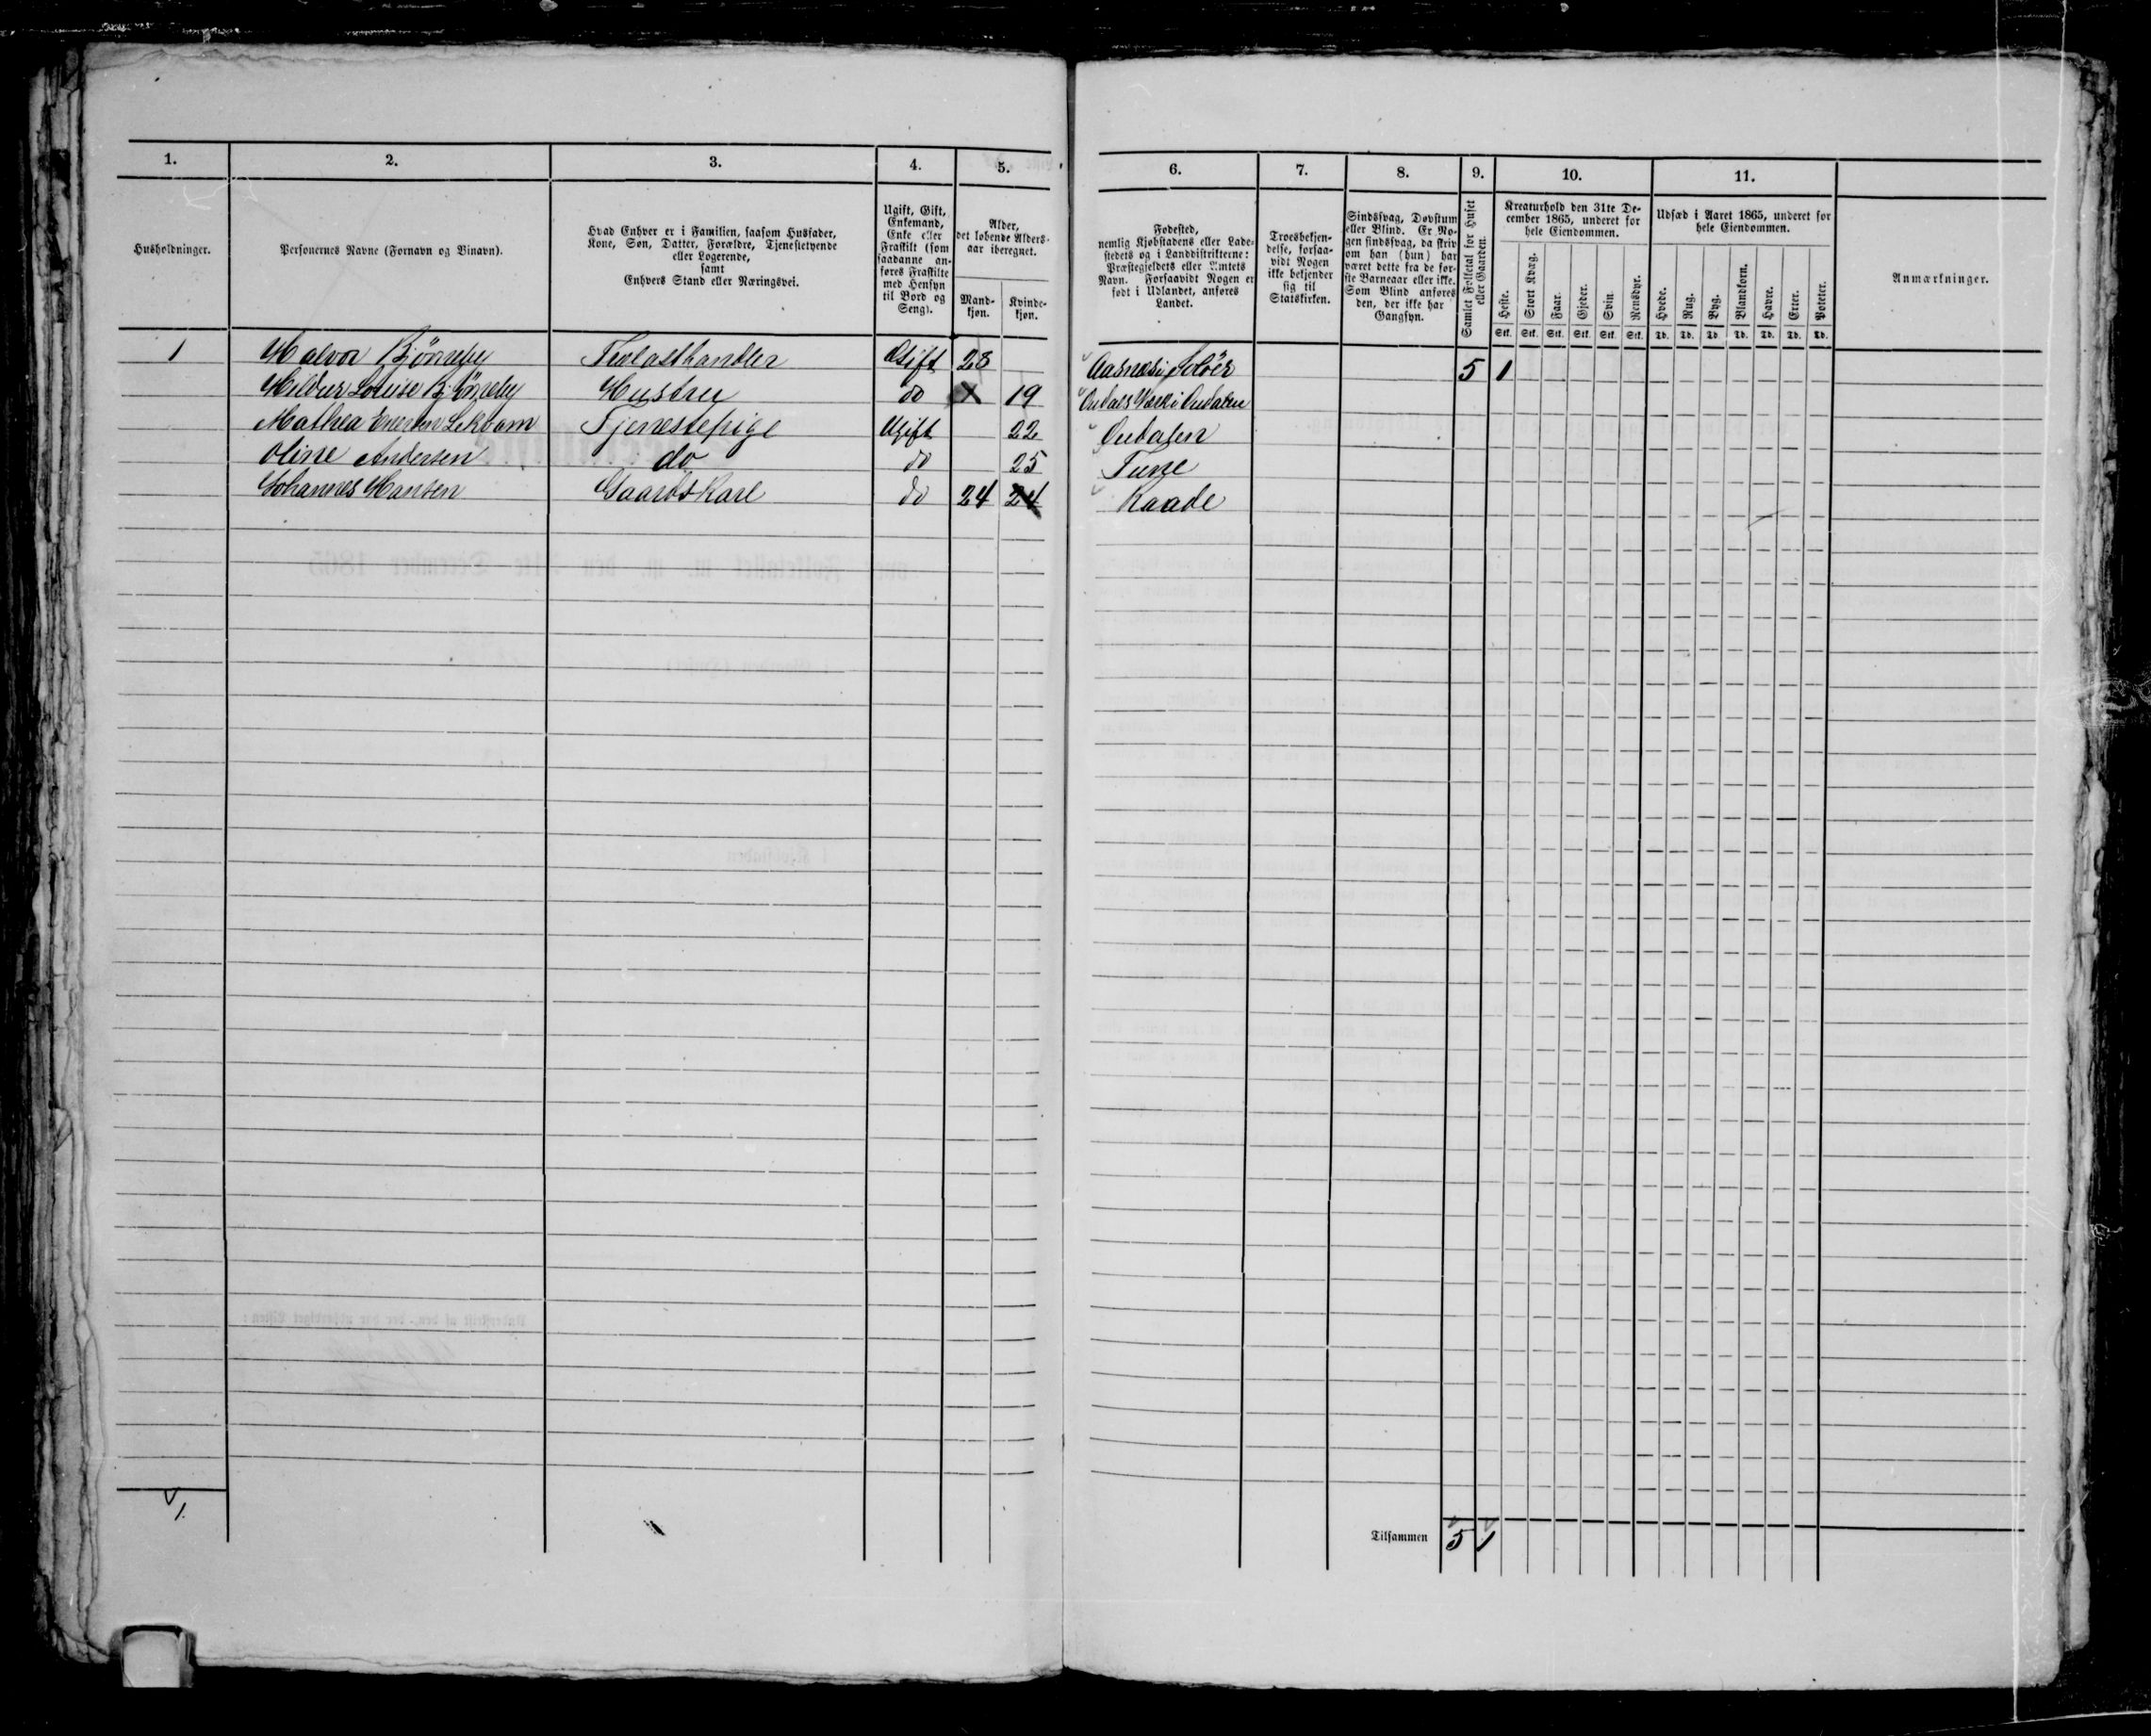 1. 2. 3. 4. 5. 6. 7. 8. 9. 10. 11.
Husholdninger.
Personernes Navne (Fornavn og Binavn).
Hvad Enhver er i Familien, saasom Husfader,
Kone, Søn, Datter, Forældre, Tjenestetyende
eller Logerende,
samt
Enhvers Stand eller Næringsvei.
Ugift, Gift,
Enkemand,
Enke eller
Fraskilt (som
saadanne an-
føres Fraskilte
med Hensyn
til Bord og
Seng).
Alder,
det løbende Alders-
aar iberegnet.
Mand-
kjøn.
Kvinde-
kjøn.
Fødested,
nemlig Kjøbstadens eller Lade-
stedets og i Landdistrikterne:
Præstegjeldets eller Amtets
Navn. Forsaavidt Nogen er
født i Udlandet, anføres
Landet.
Troesbekjen-
delse, forsaa-
vidt Nogen
ikke bekjender
sig til
Statskirken.
Sindssvag, Døvstum
eller Blind. Er No-
gen sindssvag, da skriv
om han (hun) har
været dette fra de før-
ste Barneaar eller ikke.
Som Blind anføres
den, der ikke har
Gangsyn.
Samlet Folketal for Huset
eller Gaarden.
Kreaturhold den 31te De-
cember 1865, underet for
hele Eiendommen.
Heste. Stort Kvæg. Faar. Gjeder. Svin. Rensdyr.
Stk. Stk. Stk. Stk. Stk. Stk.
Udsæd i Aaret 1865, underet for
hele Eiendommen.
Hvede. Rug. Byg. Blandkorn. Havre. Erter. Poteter.
Td. Td. Td. Td. Td. Td. Td.
Anmærkninger.
1 Halvor Bjöneby Trælasthandler Gift 28 Aasnæs i Solöer 5 1
Louise Bjöneby Hustru do 19 Odals Værk i Oudalen
Mathea Tjenestepige Ugift 22 Oudalen
Oline Andersen do do 25 Tune
Johannes Hansen Gaardskarl do 24 24 Raade
1.
Tilsammen 5 1